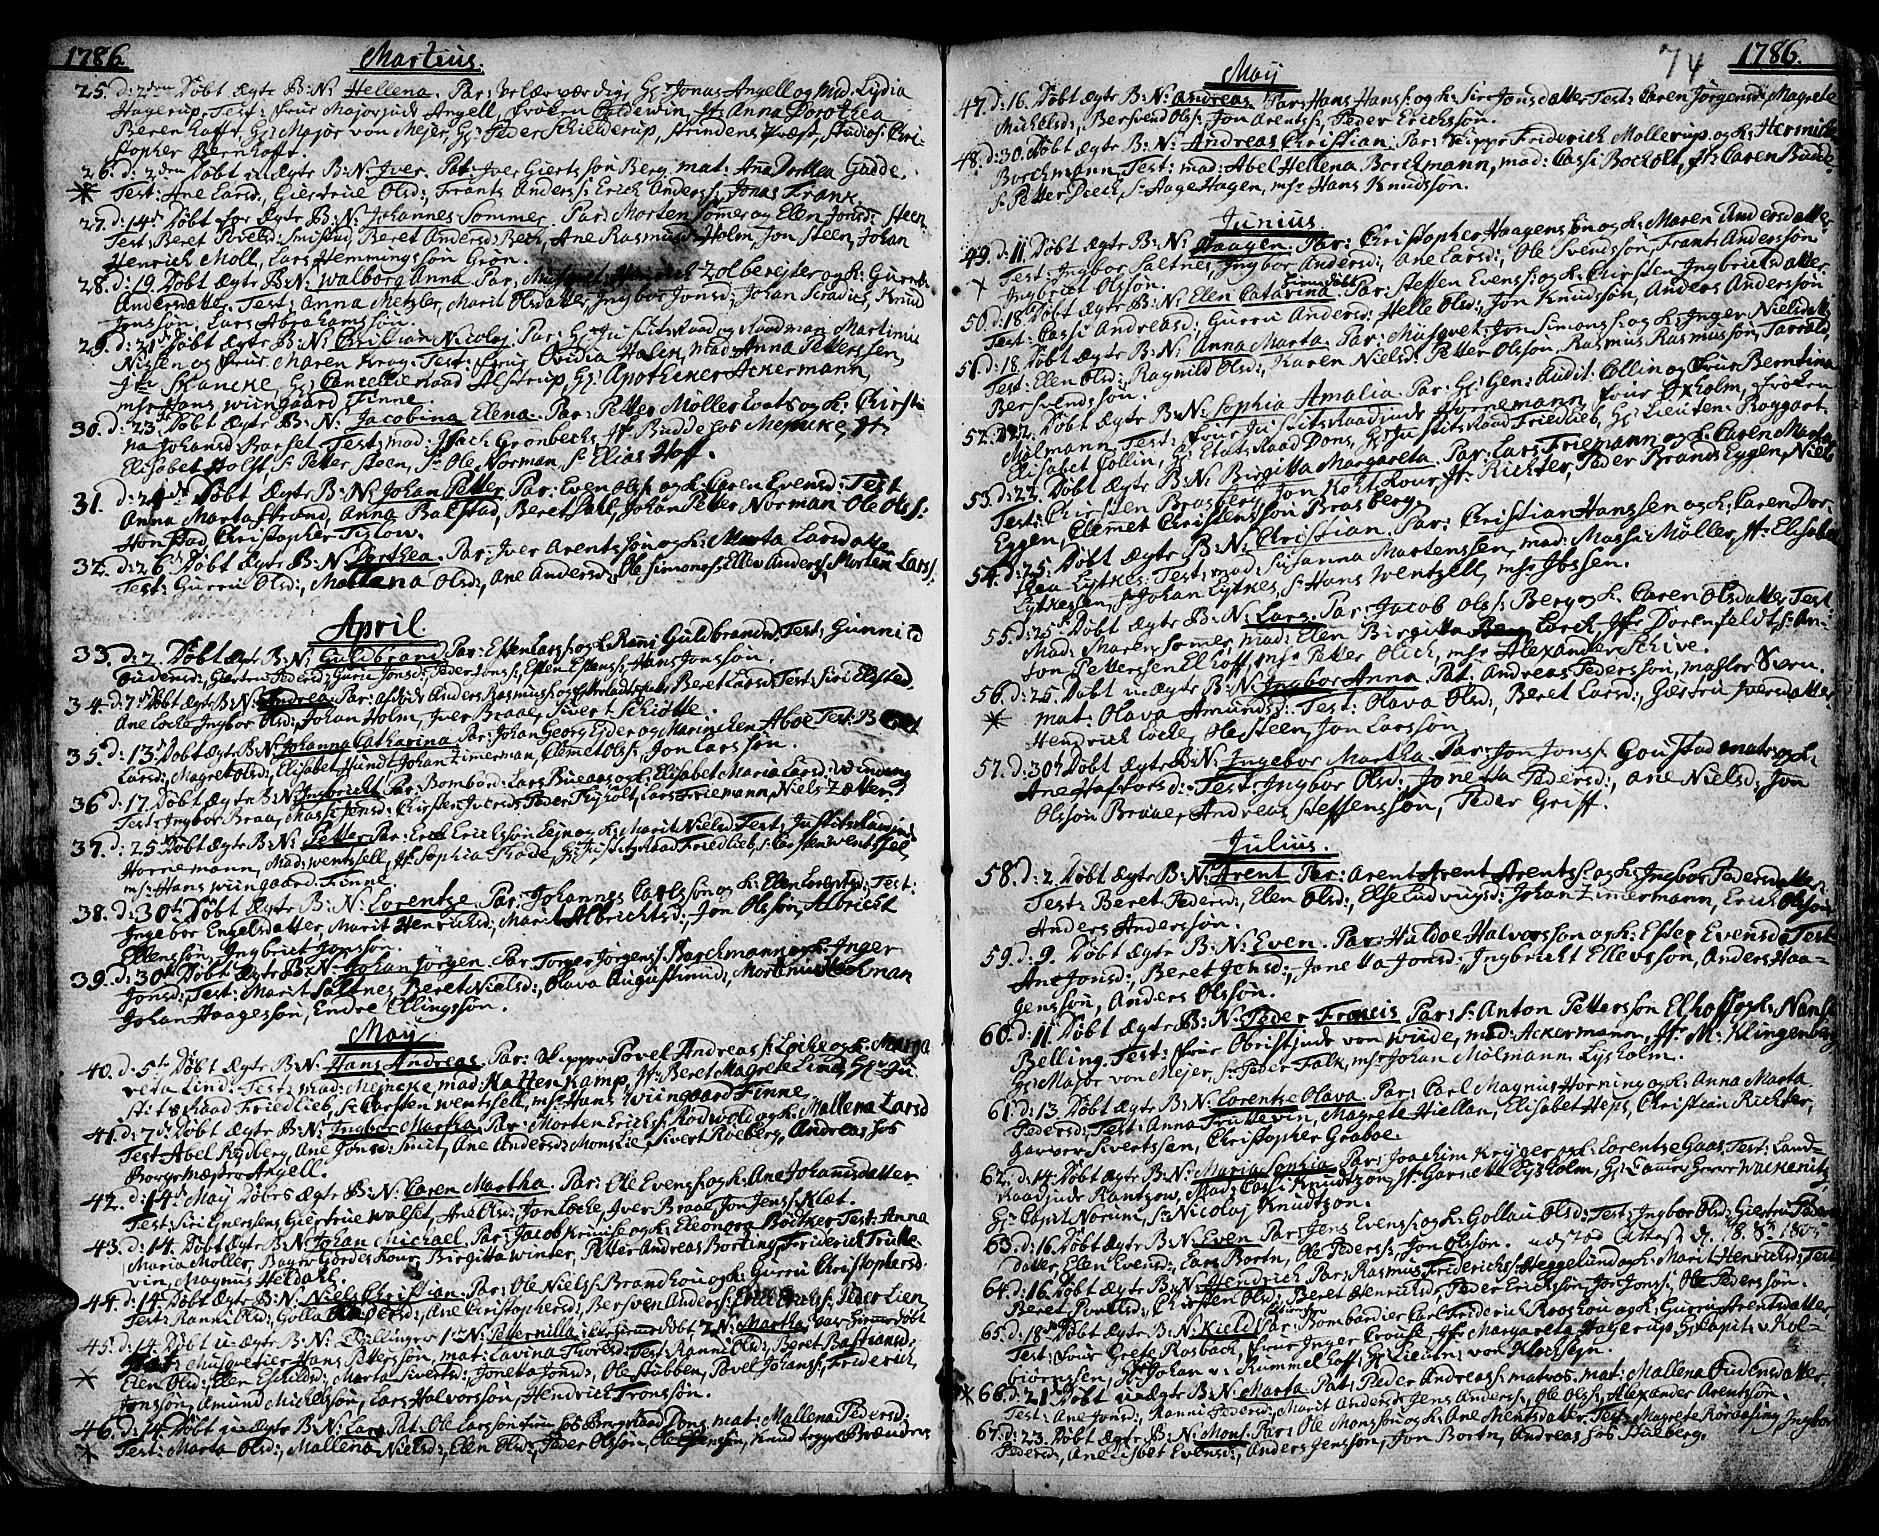 1786.
Martius.
25. d: 2den Døbt Ægte B: N: Hellena. Par: Velærværdig Hr Jonas Angell og Mad. Lydia
Hagerup, Test: Frue Majorjude Angell, Frøken Jfr Anna Dorothea
Bernhofft, Hr Major von Mejer, Hr Peder Schielderup, Strindens Præst, Studios: Chri-
stopher Bernhofft.
26. d: 2den Døbt uægte B: N: Iver. Pat: Iver Giertsson Berg, mat: Ana Dorthea Gudde.
Test: Ane Larsd:, Giertrue Olsd:, Frants Anders:, Erich Anders:, Jonas Frank.
27. d: 14de Døbt Ægte B: N: Johannes Sommer. Par: Morten Somer og Elen Jonsd: Steen
Test: Beret Povelsd: Smistad, Beret Andersd: Bech, Ane Rasmusd: Holm, Jon Steen, Johan
Henrich Moll, Lars Hemmingsson Grøn.
28. d: 19. Døbt Ægte B: N: Walborg Anna. Par: Zolbereiter og k: Gurru
Andersdatter. Test: Anna Metzler, Marit Olsdatter, Ingbor Jonsd:, Johan Knud
Jonsson, Lars Abrahamssøn.
29. d: 21de Døbt Ægte B: N: Nicolay. Par: Hr Justitsraad og Raadman Martinus
Nissen og Frue Maren Krog. Test: Frue Ovidia Halen, mad: Anna Petterssen,
Jfr Schancke, Hr Cancellieraad Alstrup, Hr Apotheker Ackermann,
msr Hans Wiingaard Finne.
30. d: 23de Døbt Ægte B: N: Jacobina Elena. Par: Petter Møller Loots og k: Kirsti-
na Johansd: Baasset, Test: mad: Isach Grønbech, Jfr Budde hos Mejncke, Jfr
Elisabet Holst, Sr Petter Steen, Sr Ole Norman, Sr Elias Hoff.
31. d: 24de Døbt Ægte B: N: Johan Petter. Par: Even Ols: og k: Caren Evensd: Test
Anna Marta Strand, Anna Bakstad, Beret Johan Petter Norman, Ole Ols:
Honstad, Christopher Tislow.
32. d: 26. Døbt Ægte B: N: Dorthea. Par: Iver Arentssøn og k: Marta Larsdatter
Test: Gurru Olsd:, Mallena Olsd:, Ane Andersd:, Ole Simons:, Ellev Anders:, Morten Lars:
April.
33. d: 2. Døbt Ægte B: N: Guldbrand. Par: Esten Lars: og k: Rani Guldbrandsd. Test: Gunnild
Gudensd:, Giertrue Pedersd:, Guru Jonsd:, Peder Jons:, Esten Estens:, Hans Jonssøn.
34. d: 7de Døbt Ægte B: N: Andrea. Par: Anders Rasmus: Beret Larsd: Test: Siri Elgsted,
Ane Locka, Ingbor Olsd:, Johan Holm, Iver Braae, Sivert Schiøtte.
35. d: 13. Døbt Ægte B: N: Johanna Catharina. Par: Johan Georg Ejder og Marinchen Aboe Test: Beret
Larsd:, Magret Olsd:, Elisabet Hundt, Johan Zimerman, Clemet Ols:, Jon Larssøn.
36. d: 17. Døbt Ægte B: N: Ingbricht. Par: Bombard: Lars Bueaas og k: Elisabet Maria Larsd: Winding
Test: Ingbor Braa, Massi Jensd:, Chirsten Iversd:, Peder Fryholt, Lars Friemann, Niels Zætter.
37. d: 25. Døbt Ægte B: N: Petter. Par: Erich Ericksson Lejn og k: Marit Nielsd: Test: Justitsraadjude
Hornemann, Mad: Wentssell, Jfr Sophia Thode, Hr Justitzraad Friedlieb, Sr Carsten Wentssel,
msr Hans Wiingaard Finne.
38. d: 30te Døbt Ægte B: N: Lorentze. Par: Johannes Carlssøn og k: Elen Test:
Ingebor Engelsdatter, Marit Henrichsd:, Marit Albrichtsd:, Jon Olssøn, Albricht
Ellenssøn, Ingbriet Jonssøn.
39. d: 30te Døbt Ægte B: N: Johan Jørgen. Par: Jørgens: Borchmann og k: Inger
Jonsd:, Test: Marit Saltnes, Beret Nielsd:, Olava Augustinusd:, Mortinus Hochman
Johan Haagessøn, Endre Ellingssøn.
May
40. d: 5te Døbt Ægte B: N: Hans Andreas. Par: Skipper Povel Andreas: Løcke og k: Marga-
reta Lind, Test: mad: Meincke, mad: Kattenkamp, Jfr Beret Magrete Lind, Hr Ju-
stitsRaad Friedlieb, Sr Carsten Wentssell, msr Hans Wiingaard Finne.
41. d: 7de Døbt Ægte B: N: Ingbor Martha. Par: Morten Ericks: Rødwold og k: Mallena Larsd
Test Abel Rydberg, Ane Jonsd: Smit, Ane Andersd: Monslie, Sivert Roeberg, Andreas hos
Angell.
42. d: 14de May Døbt Ægte B: N: Caren Martha. Par: Ole Evens: og k: Ane Johannisdatter
Test: Siri Gnerssens, Giertrue Walset, Ane Olsd:, Jon Locke, Iver Braae, Jon Jens: Klæt.
43. d: 14. Døbt Ægte B: N: Johan Michael. Par: Jacob Kruuse og k: Eleonora Bødtker Test: Anna
Maria Møller, Birgitta Winter, Petter Andreas Borting, Friderich Trütte-
vin, Magnus Heldahl.
44. d: 14. Døbt Ægte B: N: Niels Christian. Par: Ole Niels: Brandhou og k: Gurru Christophersd:
Test: Ranni Olsd:, Golla Olsd:, Ane Christophersd:, Bersven Anders:, Peder Lien,
45. d: 14. Døbt u-ægte B: N: Tvillinger 1te N: Petternilla 2de N: Martha var hjemedøbt
Pat: Musquetier Hans Pettersøn, mat: Lavina Thoresd: Test: Ranni Olsd:, Beret Bastiansd:,
Elen Olsd:, Elen Eschildsd:, Marta Sivertsd:, Joneta Jonsd:, Ole Stubben, Povel Johans:, Friderich
Jonssøn, Amund Michelssøn, Lars Halvorssøn, Hendrich Tronssøn.
46. d: 14. Døbt u-ægte B: N: Lars. Pat: Ole Larssøn hos Dons, mat: Mallena Pedersd:
Test: Marta Olsd:, Mallena Nielsd:, Elen Olsd:, Peder Olssøn, Knud
74 1786.
May
47. d: 16. Døbt Ægte B: N: Andreas. Par: Hans Hans: og k: Siri Jonsdatter Test: Caren Jørgensd: Magrete
Michelsd:, Bersvend Ols:, Jon Arents:, Peder Erichssøn.
48. d: 30. Døbt Ægte B: N: Andreas Christian. Par: Skipper Friderich Mollerup og k: Hermiche
Borchmann, Test: mad: Abel Hellena Borchmann, mad: Cassi Bocholt, Jfr Caren Budde
Sr Petter Sr Aage Hagen, msr Hans Knudssøn.
Junius
49. d: 11. Døbt Ægte B: N: Haagen. Par: Christopher Haagenssøn og k: Maren Andersdatter
Test: Ingbor Saltnes, Ingbor Andersd:, Ane Larsd:, Ole Svendssøn, Frants Anderssøn
Ingbriet Olssøn.
50. d: 18. Døbt Ægte B: N: Elen Catarina. Par: Steffen Evens: og k: Chirsten Ingbrietsdatter
Test: Cassi Andreasd:, Gurru Andersd:, Helle Olsd:, Jon Knudssøn, Anders Anderssøn
51. d: 18. Døbt Ægte B: N: Anna Marta. Par: Musqvet: Jon Simons: og k: Inger Nielsdatter
Test: Elen Olsd:, Ragnild Olsd:, Karen Nielsd:, Petter Olssøn, Rasmus Rasmussøn, Tarrald
Bersvendssøn.
52. d: 22. Døbt Ægte B: N: Sophia Amalia. Par: Hr Gen: Audit: Collin og Frue Berntina
Molmann, Test: Frue Justitsraadjude Hornemann, Frue Oxholm, Frøken
Elisabet Collin, Hr Etats Raad Dons, Hr Justits Raad Friedlieb, Hr Lieuten: Roggert
53. d: 22. Døbt Ægte B: N: Birgitta Margareta. Par: Lars Friemann og k: Caren Marta
Test: Chirsten Brasberg, Jon Holt, Jfr Richter, Peder Brands Eggen, Niels
Eggen, Clemet Christenssøn Brasberg.
54. d: 25. Døbt Ægte B: N: Christian. Par: Christian Hanssen og k: Caren Dor-
thea Lytkes. Test: mad: Susanna Martenssen, mad: Massi Møller, Jfr Elisabet
Lytkessen, Sr Johan Lytkes, Sr Hans Wentzell, msr Ibssen.
55. d: 25. Døbt Ægte B: N: Lars. Par: Jacob Ols: Berg og k: Caren Olsdatter, Test
Mad: Maren Sommer, mad: Elen Birgitta Lorck, Jfr Dorenfeldt, Sr An-
ton Petterssen Elhoff, msr Petter Olich, msr Alexander Schive.
56. d: 25. Døbt u-ægte B: N: Ingbor Anna. Pat: Andreas Pederssøn, magler Svend.
mat: Olava Amundsd: Test: Olava Olsd:, Beret Larsd:, Giertru Iversdatter
Hendrich Locke, Ole Steen, Jon Larssøn.
57. d: 30te Døbt Ægte B: N: Ingebor Martha. Par: Jon Jons: Goustad matr: og k:
Ane Haftorsd: Test: Ingbor Olsd:, Joneta Pedersd:, Ane Nielsd:, Jon
Olssøn Braae, Andreas Steffenssøn, Peder Griff.
Julius.
58. d: 2. Døbt Ægte B: N: Arent. Par: Arent Arent Arents: og k: Ingbor Pedersdatter,
Test: Beret Pedersd:, Elen Olsd:, Else Ludvigsd:, Johan Zimermann, Erich Olssøn
Anders Anderssøn.
59. d: 9. Døbt Ægte B: N: Even. Par: Huldoe Halvorssøn og k: Ester Evensd: Test
Ane Jonsd:, Beret Jonsd:, Janetta Jonsd:, Ingbricht Ellevssøn, Anders Haa-
genssøn, Anders Olssøn.
60. d: 11. Døbt Ægte B: N: Peder Francis. Par: Sr Anton Petterssøn Elhoff og k: Nansi
Belling. Test: Frue Obristjude von Wiide, mad: Ackermann, Jfr M: Klingenberg
Hr Major von Mejer, Sr Peder Falk, msr Johan Molmann Lysholm.
61. d: 13. Døbt Ægte B: N: Lorentze Olava. Par: Carl Magnus Horning og k: Anna Marta
Pedersd:, Test: Anna Trüttevin, Magrete Hiellan, Elisabet Heps, Christian Richter,
Gavver Sivertssen, Christopher Graboe.
62. d: 14. Døbt Ægte B: N: Maria Sophia. Par: Joachim Krüger og k: Lorentse Gaas, Test: Land-
raadjude Rantzow, Mad: Cassi Knudtzon, Jfr Lysholm, Hr Walkenitz,
Hr Capit Norum, Sr Nicolay Knudtzon.
63. d: 16. Døbt Ægte B: N: Even. Par: Jens Evens: og k: Gollau Olsd: Test: Ingbor Olsd:, Giertru Peders-
datter, Elen Evensd:, Lars Bortn, Ole Peders:, Jon Olssøn. d. 18. 8br 1805
64. d: 16. Døbt Ægte B: N: Hendrich. Par: Rasmus Friderichs: Heggelund og k: Marit Henrichsd: Test
Beret Povelsd:, Chirsten Olsd:, Beret Henrichsd:, Peder Erickssøn, Jon Jons:, Ole Pederssøn.
65. d: 18. Døbt Ægte B: N: Kield. Par: Bombardier Carl Friderich Rooshou og k: Gurru Arentsdatter
Test: Frue Grete Rosbach, Frue Inger Crouse, Jfr Margareta Hagerup, Hr Capit: v. Kol-
biørnssen, Hr Johan v. Rummelhoff, Hr Lieutn: von
66. d: 21de Døbt u-ægte B: N: Marta. Pat: Peder Andreas: matros. mat: Mallena Gudensdatter.
Test: Ane Jonsd:, Ranni Pedersd:, Marit Andersd:, Jens Anders:, Ole Ols:, Alexander Arentssøn.
67. d: 23. Døbt Ægte B: N: Mons. Par: Ole Monssøn og k: Ane Mentsdatter. Test: Magrete Rørossing, Ingbor
Pedersd:, Ane Lisbet Evensd:, Anders Jenssøn, Jon Bortn, Andreas hos Hueberg.